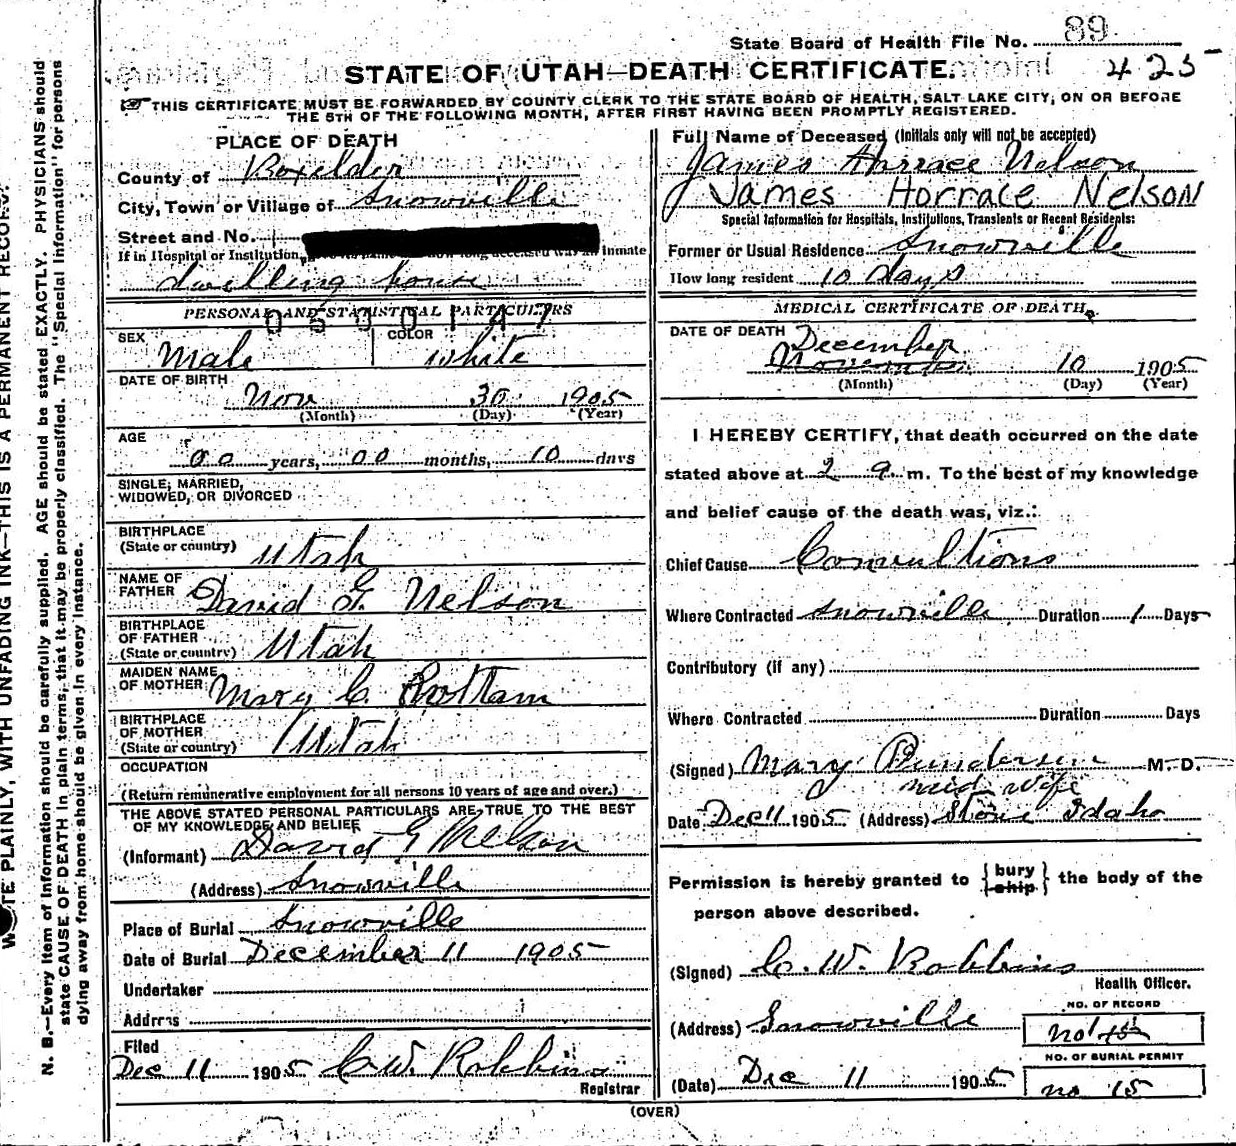 State Board of Health File No. 89
STATE OF UTAH—DEATH CERTIFICATE.
425
THIS CERTIFICATE MUST BE FORWARDED BY COUNTY CLERK TO THE STATE BOARD OF HEALTH, SALT LAKE CITY, ON OR BEFORE
THE 5TH OF THE FOLLOWING MONTH, AFTER FIRST HAVING BEEN PROMPTLY REGISTERED.
PLACE OF DEATH
County of Boxelder
City, Town or Village of Snowville
Street and No.
If in Hospital or Institution, inmate
dwelling house
PERSONAL AND STATISTICAL PARTICULARS
0500147
SEX Male
COLOR White
DATE OF BIRTH
Nov 30 1905
(Month) (Day) (Year)
AGE
00 years, 00 months, 10 days
SINGLE, MARRIED,
WIDOWED, OR DIVORCED
BIRTHPLACE
(State or country) Utah
NAME OF
FATHER David G. Nelson
BIRTHPLACE
OF FATHER
(State or country) Utah
MAIDEN NAME
OF MOTHER Mary C.
BIRTHPLACE
OF MOTHER
(State or country) Utah
OCCUPATION
(Return remunerative employment for all persons 10 years of age and over.)
THE ABOVE STATED PERSONAL PARTICULARS ARE TRUE TO THE BEST
OF MY KNOWLEDGE AND BELIEF
(Informant) David G Nelson
(Address) Snowville
Place of Burial Snowville
Date of Burial December 11 1905
Undertaker
Address
Filed
Dec 11 1905 C. W. Robbins
Registrar
Full Name of Deceased (Initials only will not be accepted)
James Horrace Nelson
James Horrace Nelson
Special Information for Hospitals, Institutions, Transients or Recent Residents:
Former or Usual Residence Snowville
How long resident 10 days
MEDICAL CERTIFICATE OF DEATH.
DATE OF DEATH December
November 10 1905
(Month) (Day) (Year)
I HEREBY CERTIFY, that death occurred on the date
stated above at 2 a. m. To the best of my knowledge
and belief cause of the death was, viz.:
Chief Cause Convultions
Where Contracted Snowville Duration 1 Days
Contributory (if any)
Where Contracted Duration Days
(Signed) Mary M. D.
mid wife
Date Dec 11 1905 (Address) Stone Idaho
Permission is hereby granted to {bury
ship} the body of the
person above described.
(Signed) C. W. Robbins
Health Officer.
NO. OF RECORD
(Address) Snowville
no 15
NO. OF BURIAL PERMIT
(Date) Dec 11 1905
no 15
(OVER)
WRITE PLAINLY, WITH UNFADING INK—THIS IS A PERMANENT RECORD.
N. B.—Every item of information should be carefully supplied. AGE should be stated EXACTLY. PHYSICIANS should
state CAUSE OF DEATH in plain terms, that it may be properly classified. The "Special Information" for persons
dying away from home should be given in every instance.